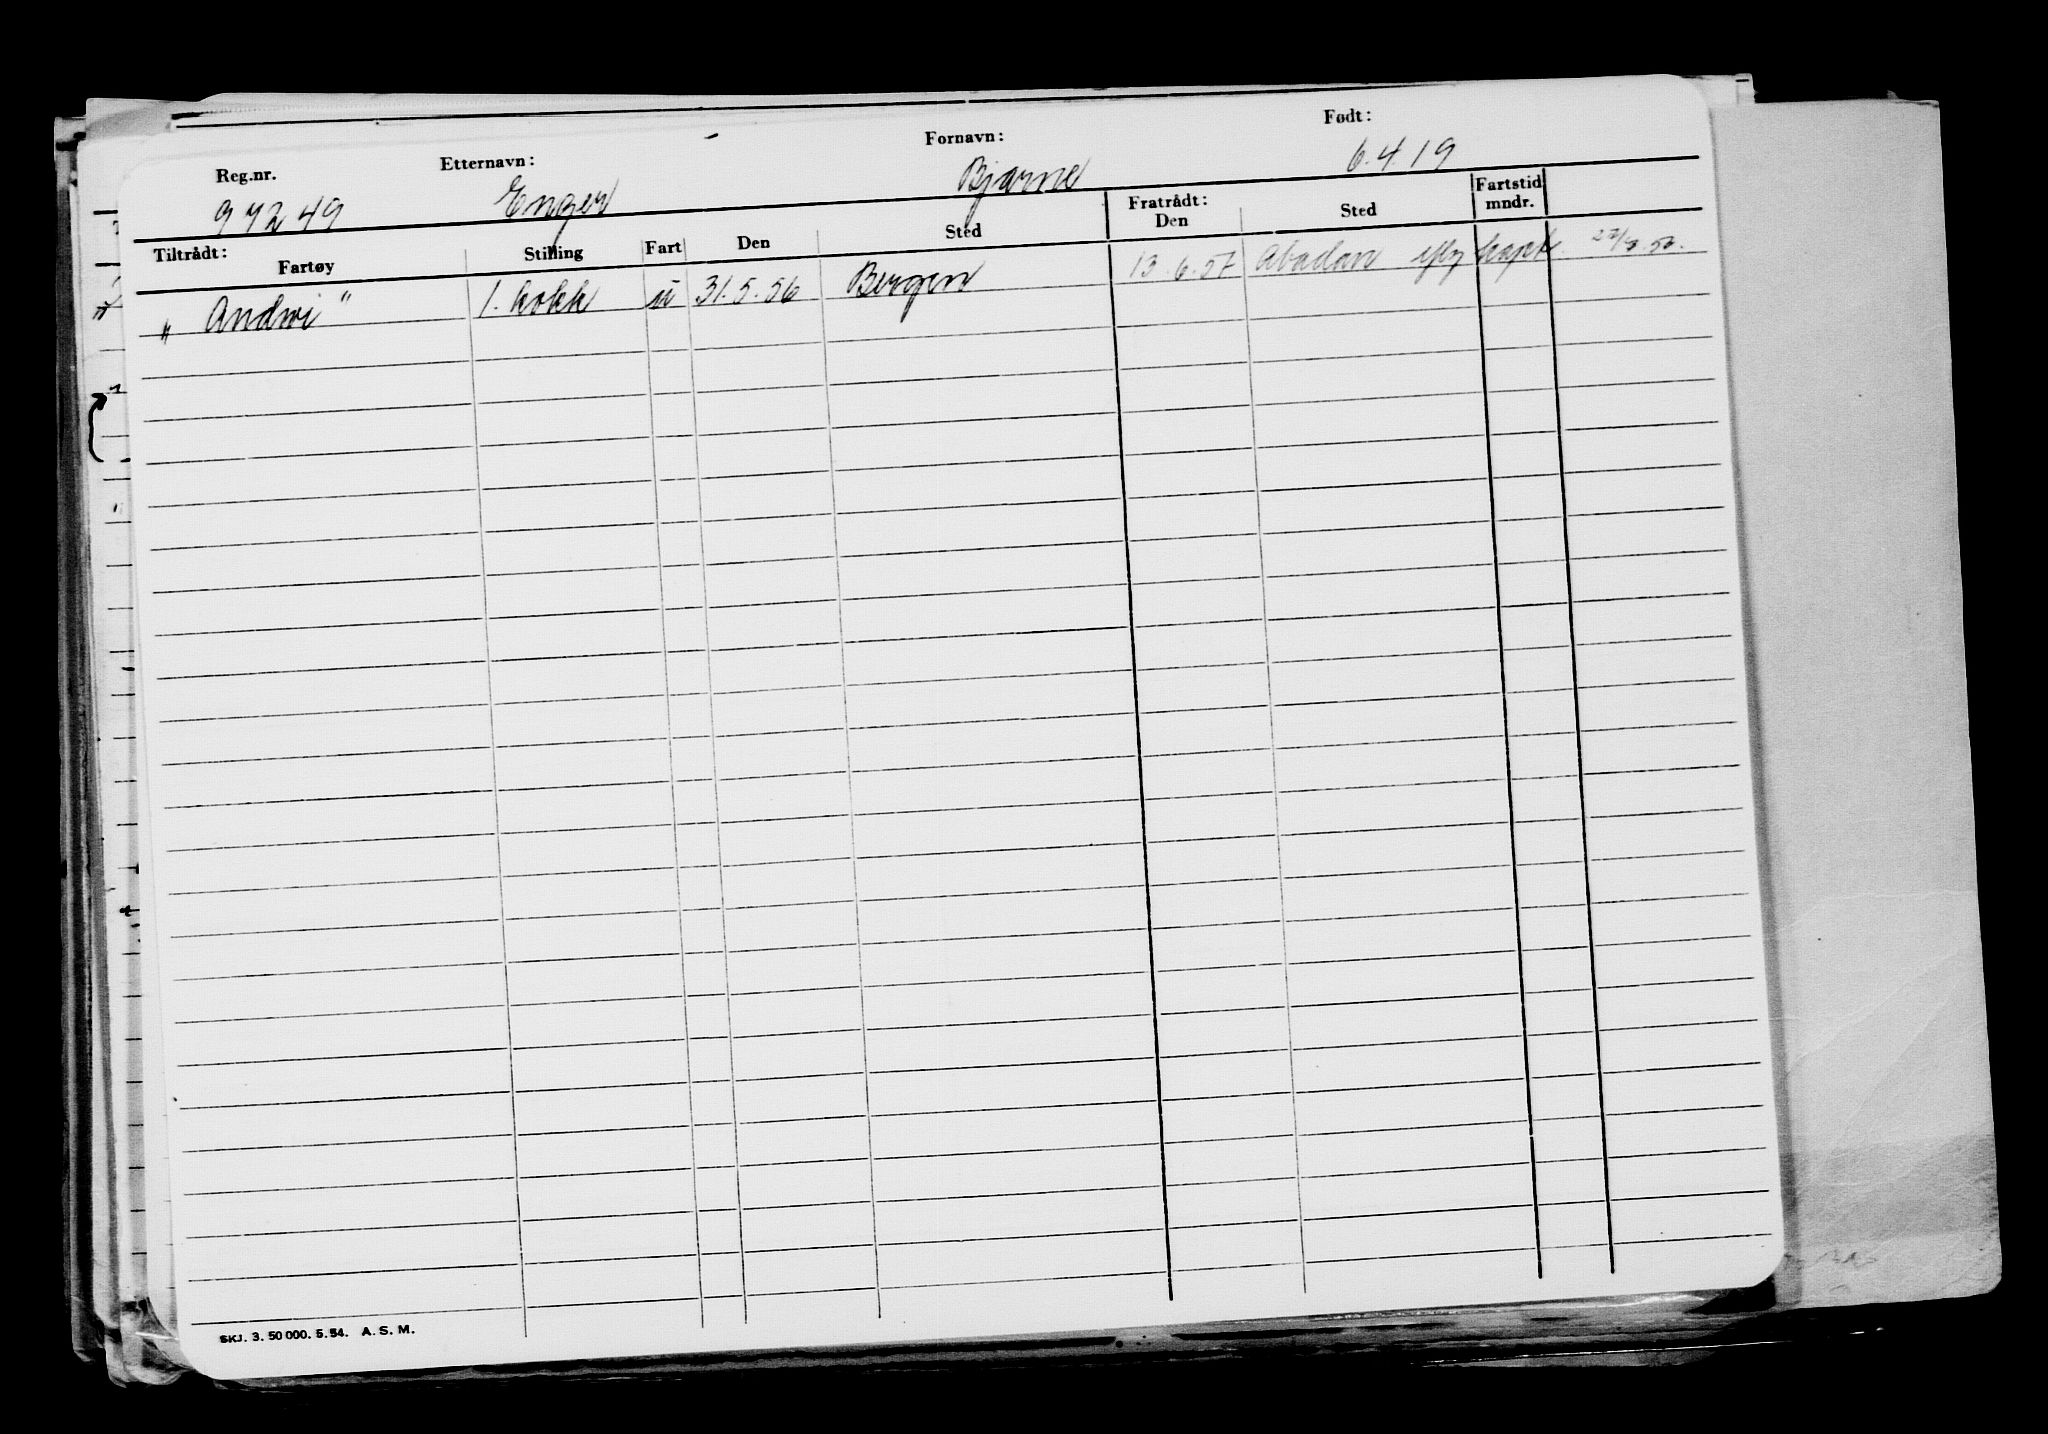 Reg.nr. Etternavn: Fornavn: Født:
97249 Enger Bjarne 6.4.19
Tiltrådt: Fartøy Stilling Fart Den Sted Fratrådt: Den Sted Fartstid mndr.
"Andwi" 1. kokk u 31.5.56 Bergen 13.6.57 Abadan iflg kapt.
SKJ. 3. 50 000. 5.54. A. S. M.